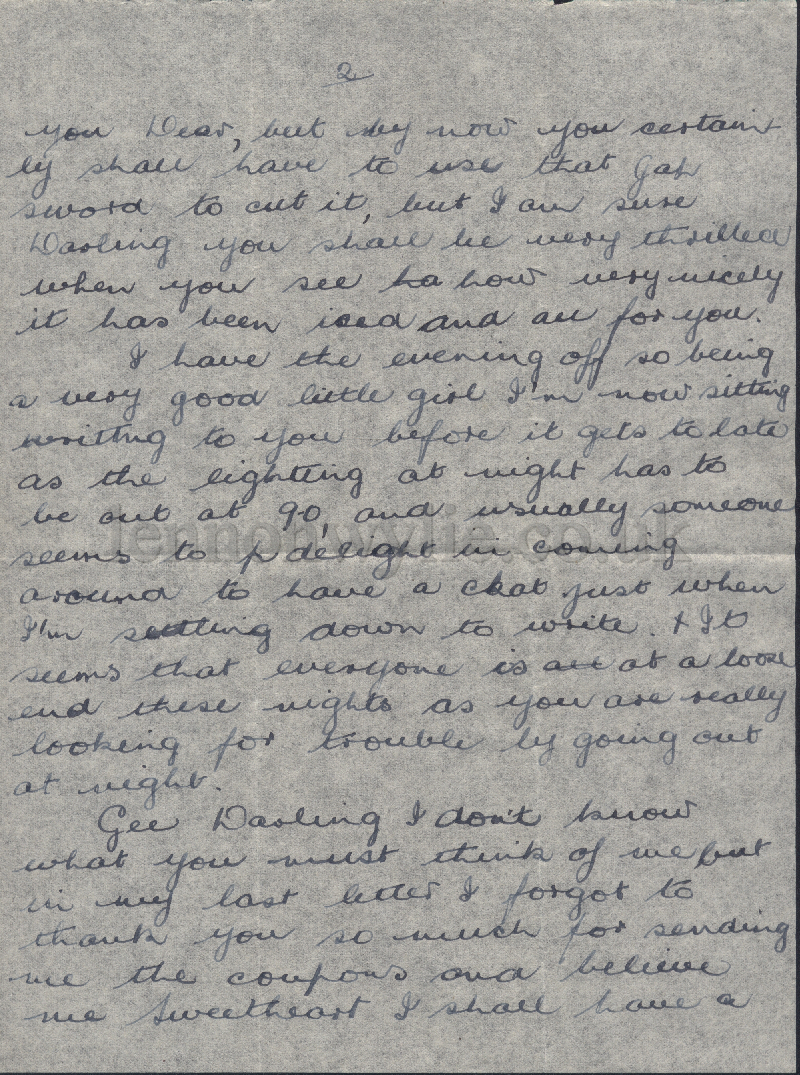 2
you Dear, but by now you certain-
ly shall have to use that Jap
sword to cut it, but I am sure
Darling you shall be very thrilled
when you see ha how very nicely
it has been iced and all for you.
I have the evening off so being
a very good little girl I'm now sitting
writtng to you before it gets to late
as the lighting at night has to
be out at 90, and usually someone
seems to p delight in coming
around to have a chat just when
I'm settling down to write. + It
seems that everyone is at a loose
end these nights as you are really
looking for trouble by going out
at night.
Gee Darling I don't know
what you must think of me but
in my last letter I forgot to
thank you so much for sending
me the coupons and believe
me Sweetheart I shall have a
lennonwylie.co.uk